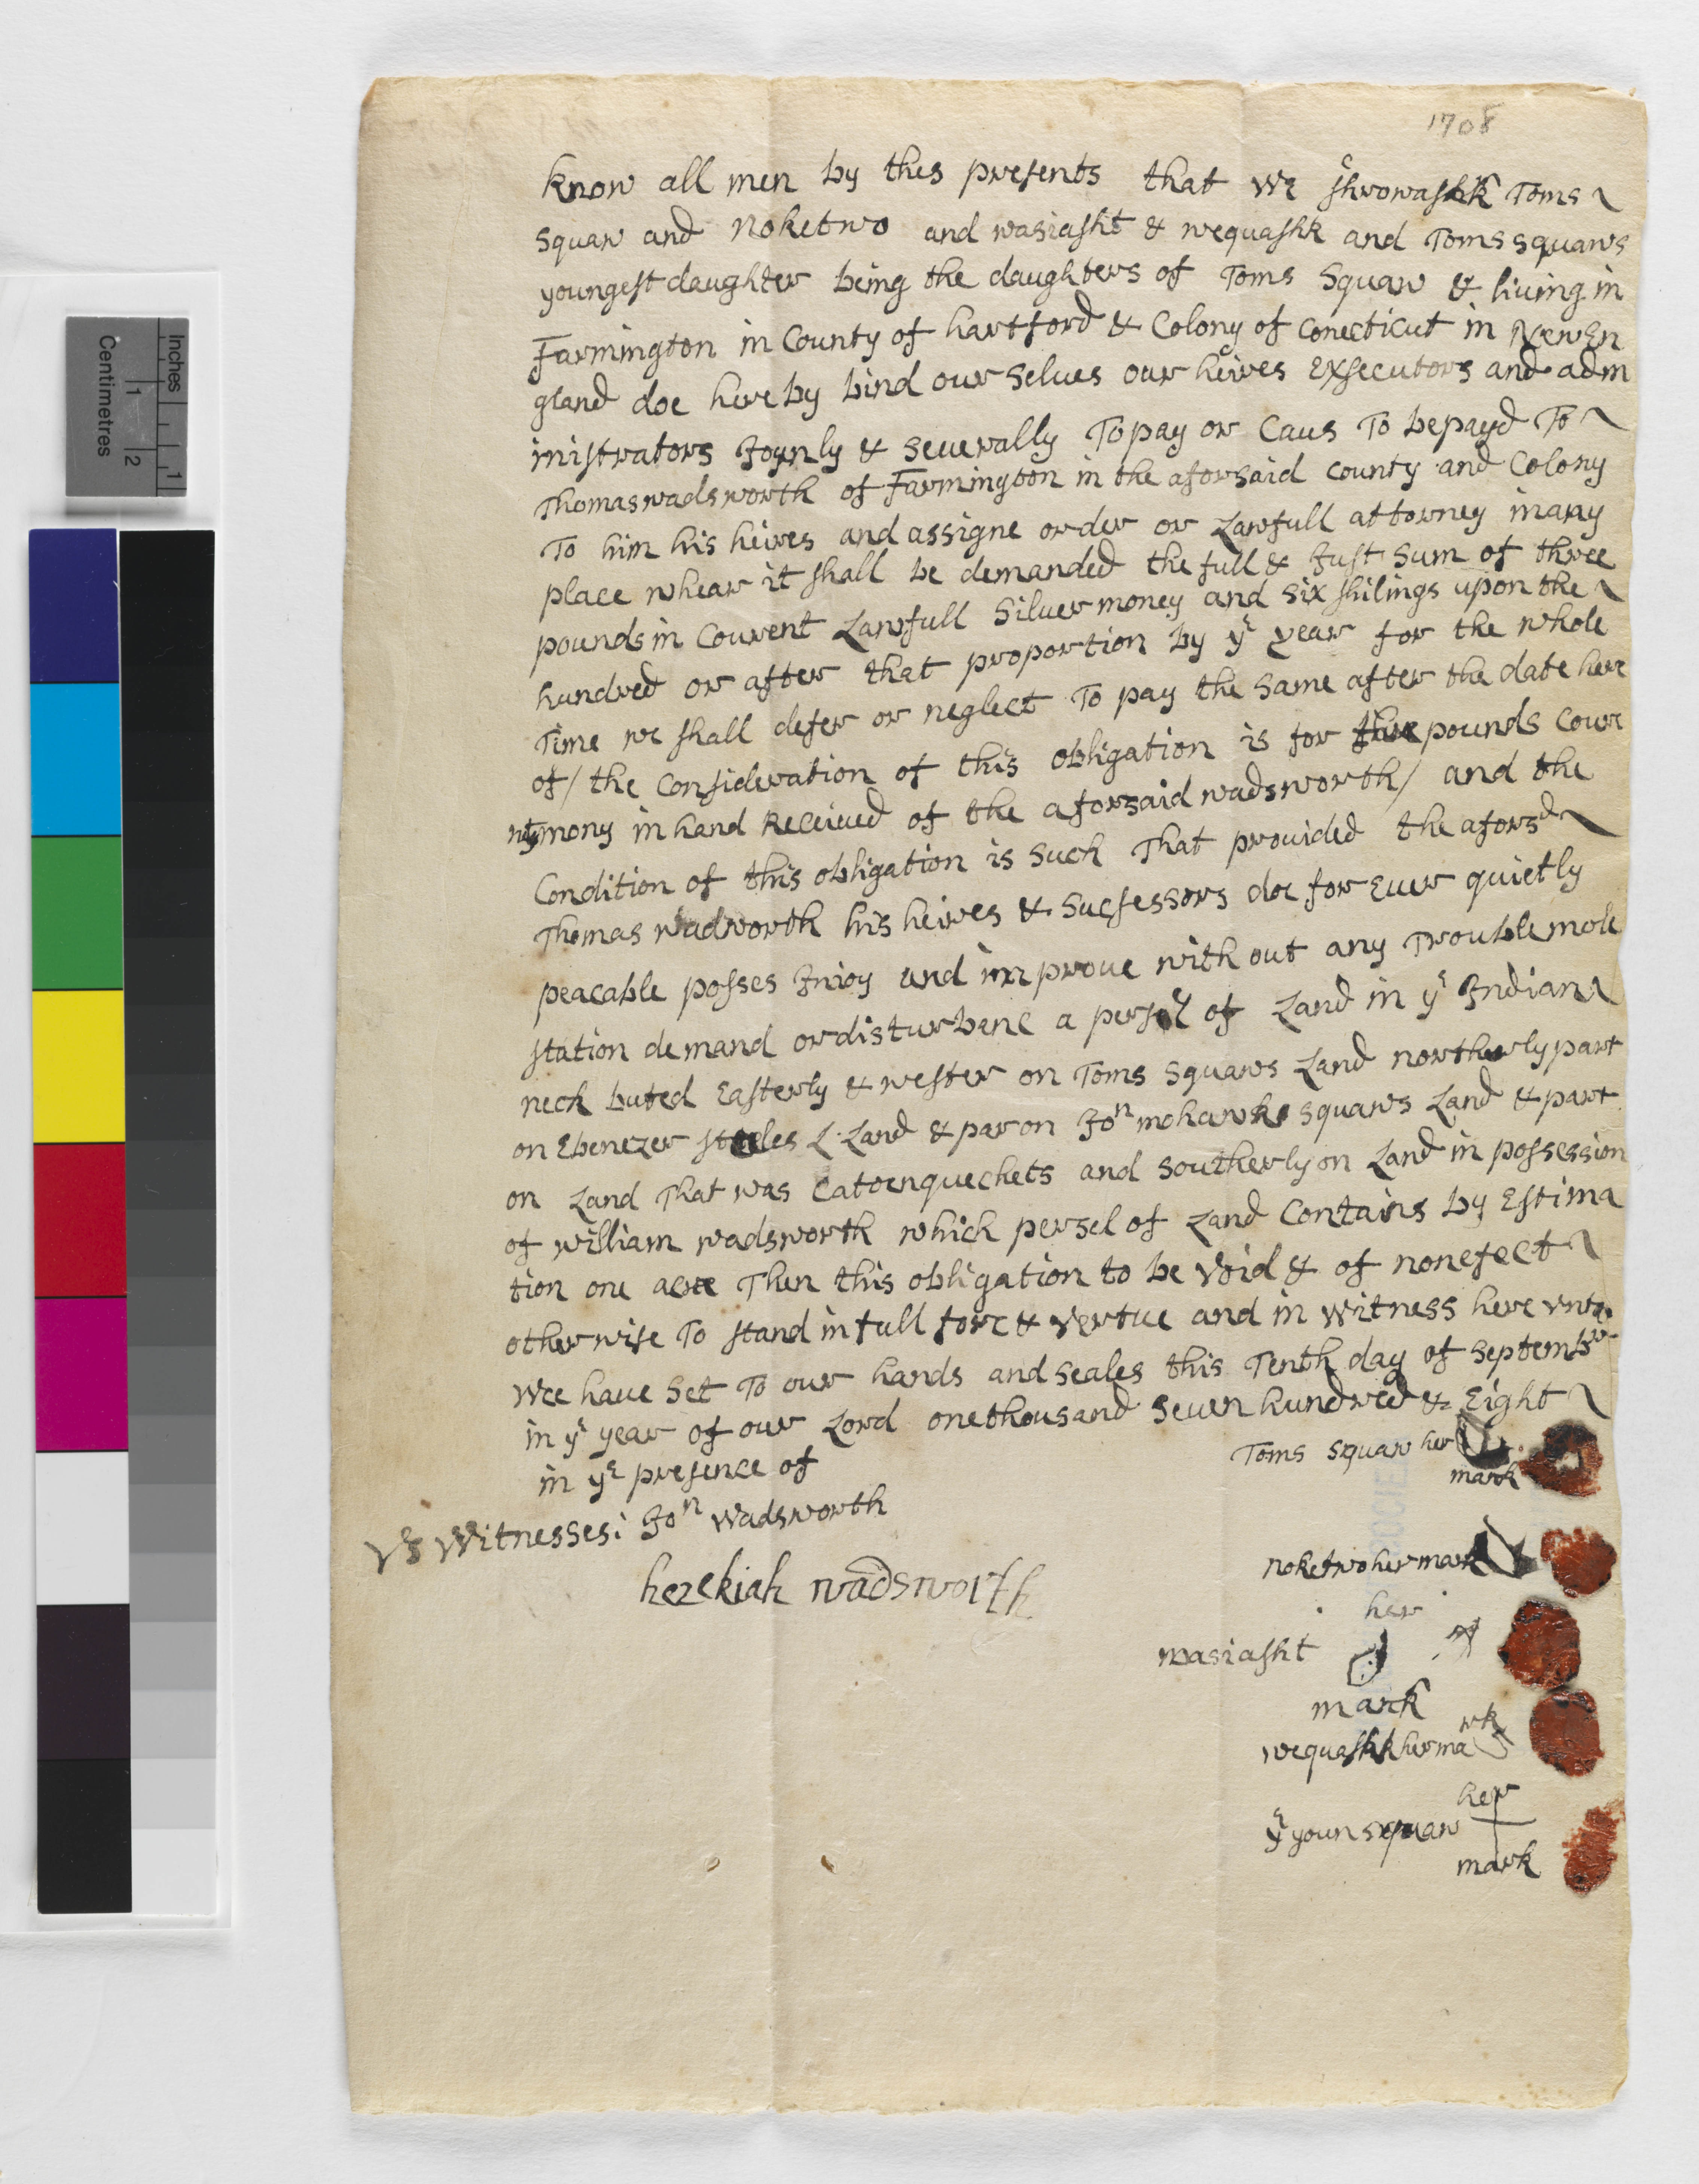 1708
know all men by thes presents that we shwowashk Toms
squaw and noketwo and wasiasht & wequashk and Toms squaws
youngest daughter being the daughters of Toms Squaw & liuing in
Farmington in County of hartford & Colony of Conecticut in NewEn
gland doe here by bind our selues our heires Exsecutors and adm
inistrators Joynly & seuerally To pay or Caus To be payd To
Thomas wadsworth of Farmington in the aforsaid county and Colony
To him his heires and assigne order or Lawfull attorney in any
place whear it shall be demanded the full & Just Sum of three
pounds in Courent Lawfull Siluer money and six shilings upon the
hundred or after that proportion by ye year for the whole
Time we shall defer or neglect To pay the same after the date here
of / the Consideration of this obligation is for pounds Coure
nt mony in hand Receiued of the aforsaid wadsworth / and the
Condition of this obligation is such That prouided the aforsd
Thomas wadworth his heires & sucsessors doe for Euer quietly
peacable posses Injoy and improue with out any Trouble mole
station demand or disturbenc a persel of Land in ye Indian
neck buted Easterly & wester on Toms squaws Land northerly part
on Ebenezer steeles L Land & par on Jon mohawks squaws Land & part
on Land That was Catoenquechets and southerly on Land in possession
of william wadsworth which persel of Land Contains by Estima
tion one acre Then this obligation to be void & of nonefect
otherwise To stand in full forc & vertue and in witness here vnto
wee haue set To our hands and seales this Tenth day of Septembr
in ye year of our Lord one thousand seuen hundred & Eight
in ye presence of
Toms squaw her
mark
vs Witnesses: Jon Wadsworth
noketwo her mark
hezekiah wadsworth
her
wasiasht
mark
wequashk her ma rk
her
ye youn squaw
mark
Inches
1
Centimetres
1
2